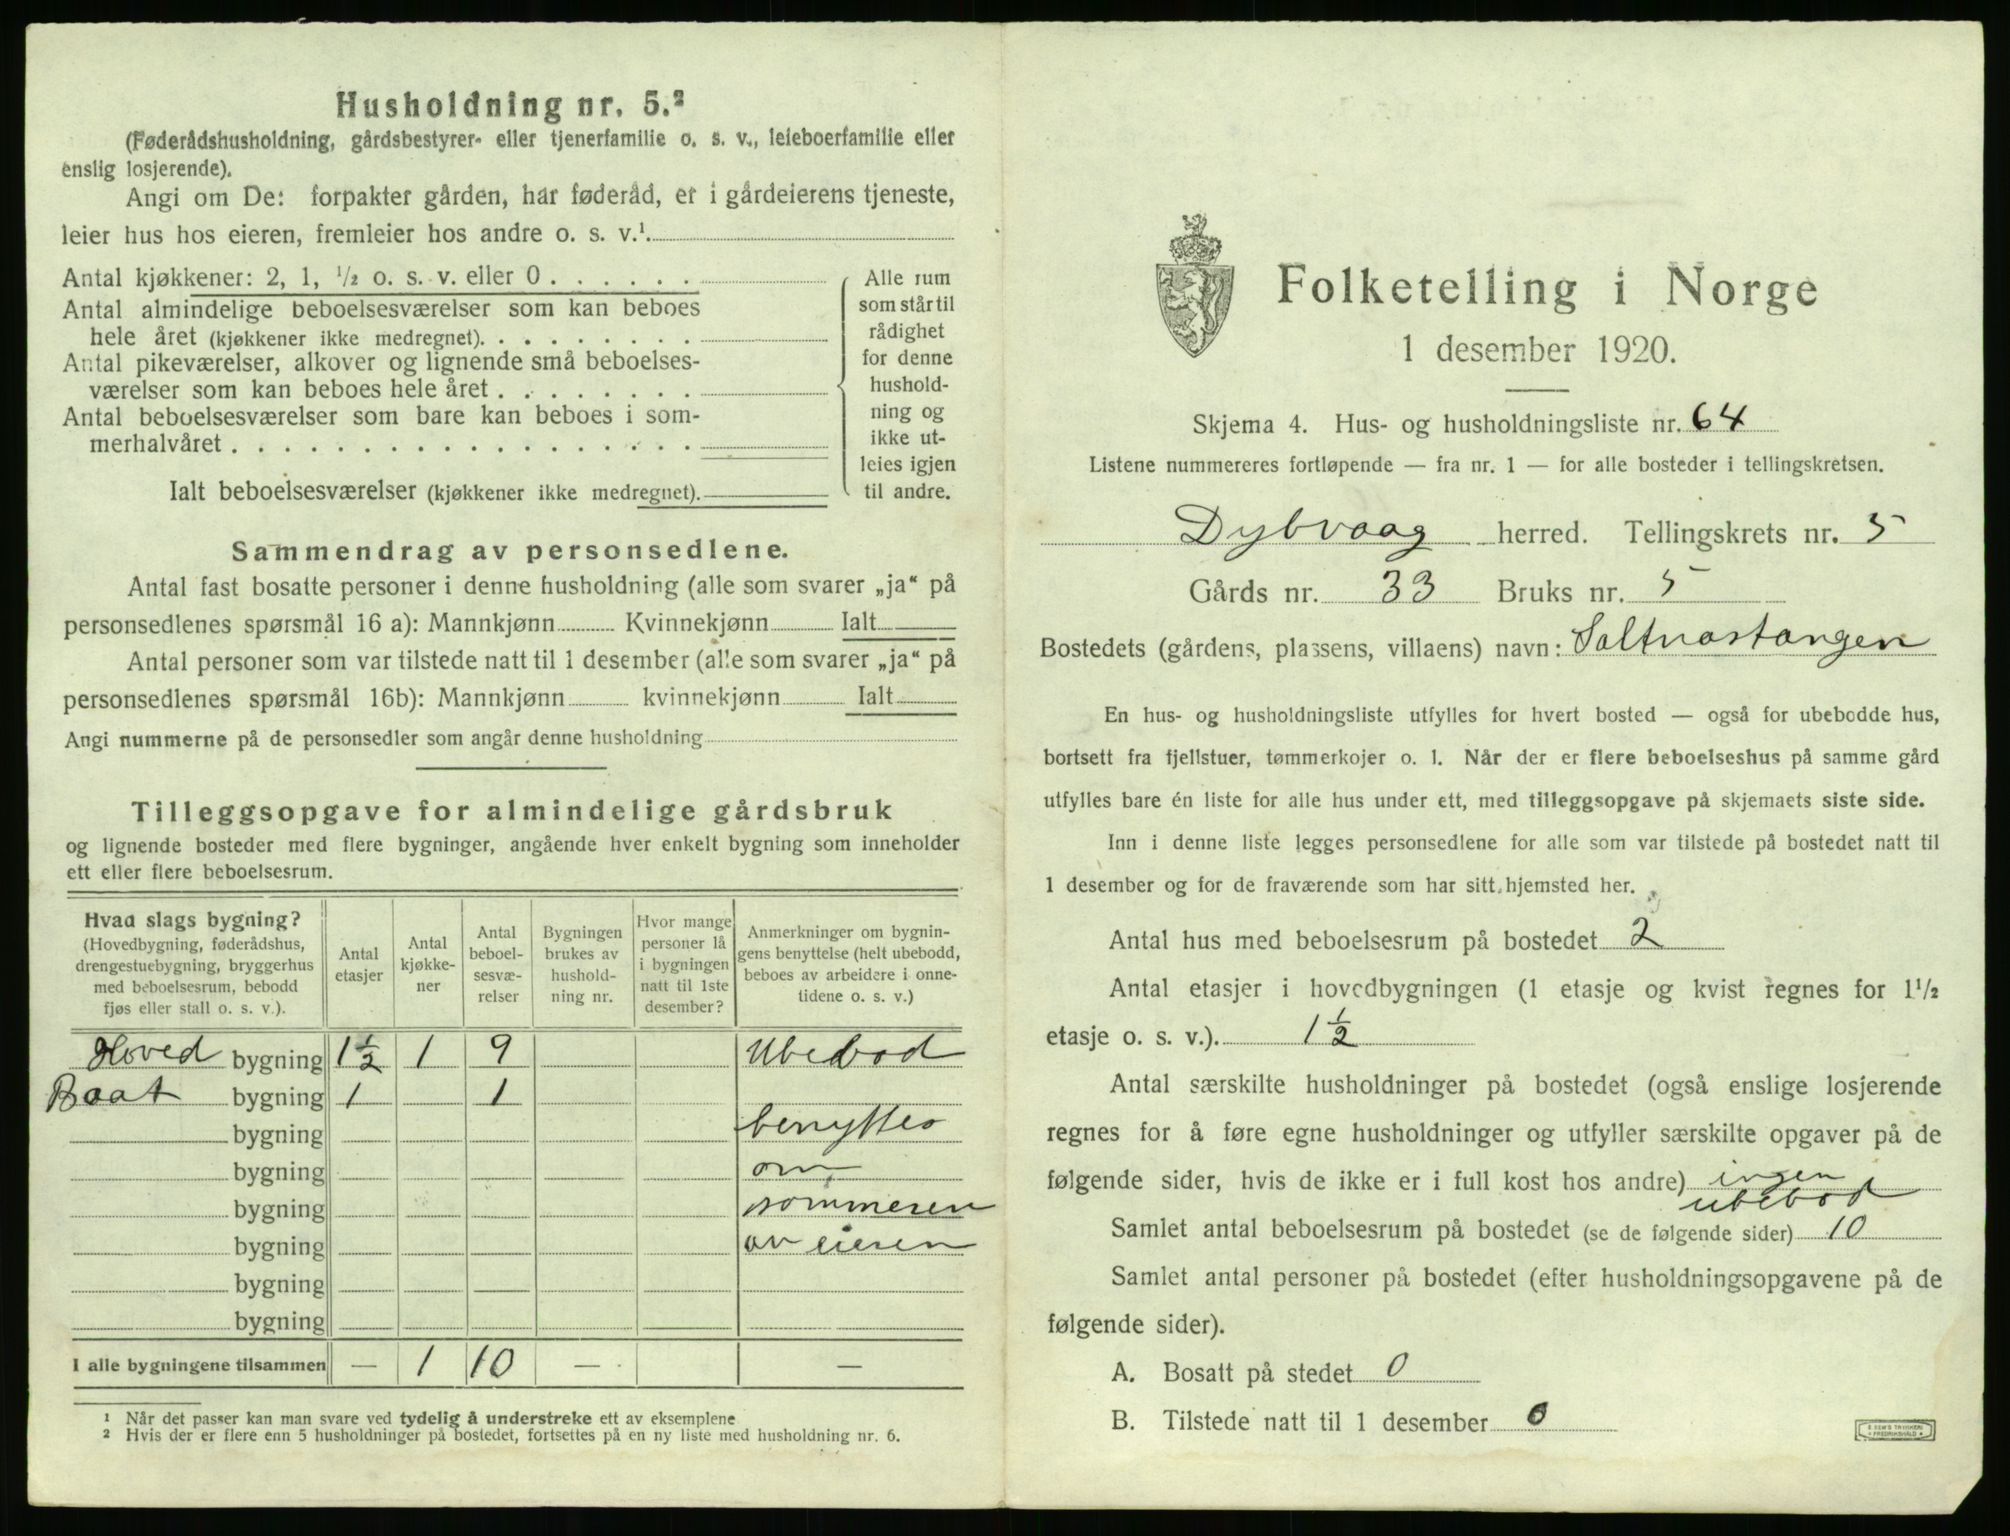 Husholdning nr. 5.²
(Føderådshusholdning, gårdsbestyrer- eller tjenerfamilie o. s. v., leieboerfamilie eller
enslig losjerende).
Angi om De: forpakter gården, har føderåd, er i gårdeierens tjeneste,
leier hus hos eieren, fremleier hos andre o. s. v.¹
Antal kjøkkener: 2, 1, ½ o. s. v. eller 0
Antal almindelige beboelsesværelser som kan beboes
hele året (kjøkkener ikke medregnet).
Antal pikeværelser, alkover og lignende små beboelses-
værelser som kan beboes hele året
Antal beboelsesværelser som bare kan beboes i som-
merhalvåret
Ialt beboelsesværelser (kjøkkener ikke medregnet).
Alle rum
som står til
rådighet
for denne
hushold-
ning og
ikke ut-
leies igjen
til andre.
Sammendrag av personsedlene.
Antal fast bosatte personer i denne husholdning (alle som svarer „ja“ på
personsedlenes spørsmål 16 a): Mannkjønn Kvinnekjønn Ialt
Antal personer som var tilstede natt til 1 desember (alle som svarer „ja“ på
personsedlenes spørsmål 16b): Mannkjønn kvinnekjønn Ialt
Angi nummerne på de personsedler som angår denne husholdning
Tilleggsopgave for almindelige gårdsbruk
og lignende bosteder med flere bygninger, angående hver enkelt bygning som inneholder
ett eller flere beboelsesrum.
Hvad slags bygning?
(Hovedbygning, føderådshus,
drengestuebygning, bryggerhus
med beboelsesrum, bebodd
fjøs eller stall o. s. v.).
Antal
etasjer
Antal
kjøkke-
ner
Antal
beboel-
sesvæ-
relser
Bygningen
brukes av
hushold-
ning nr.
Hvor mange
personer lå
i bygningen
natt til 1ste
desember?
Anmerkninger om bygnin-
gens benyttelse (helt ubebodd,
beboes av arbeidere i onne-
tidene o. s. v.)
Hoved bygning 1½ 1 9 Ubebod
Baat bygning 1 1
bygning benyttes
bygning om
bygning sommeren
bygning av eieren
bygning
bygning
I alle bygningene tilsammen — 1 10 — —
¹ Når det passer kan man svare ved tydelig å understreke ett av eksemplene
² Hvis der er flere enn 5 husholdninger på bostedet, fortsettes på en ny liste med husholdning nr. 6.
Folketelling i Norge
1 desember 1920.
Skjema 4. Hus- og husholdningsliste nr. 64
Listene nummereres fortløpende — fra nr. 1 — for alle bosteder i tellingskretsen.
Dybvaag herred. Tellingskrets nr. 5
Gårds nr. 33 Bruks nr. 5
Bostedets (gårdens, plassens, villaens) navn: Saltnastangen
En hus- og husholdningsliste utfylles for hvert bosted — også for ubebodde hus,
bortsett fra fjellstuer, tømmerkojer o. l. Når der er flere beboelseshus på samme gård
utfylles bare én liste for alle hus under ett, med tilleggsopgave på skjemaets siste side.
Inn i denne liste legges personsedlene for alle som var tilstede på bostedet natt til
1 desember og for de fraværende som har sitt hjemsted her.
Antal hus med beboelsesrum på bostedet 2
Antal etasjer i hovedbygningen (1 etasje og kvist regnes for 1½
etasje o. s. v.). 1½
Antal særskilte husholdninger på bostedet (også enslige losjerende
regnes for å føre egne husholdninger og utfyller særskilte opgaver på de
følgende sider, hvis de ikke er i full kost hos andre) ingen
ubebod
Samlet antal beboelsesrum på bostedet (se de følgende sider) 10
Samlet antal personer på bostedet (efter husholdningsopgavene på de
følgende sider).
A. Bosatt på stedet 0
B. Tilstede natt til 1 desember 0